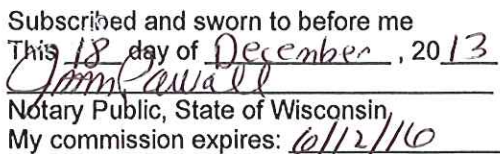 Subscribed and sworn to before me
This 18 day of December, 2013
Notary Public, State of Wisconsin
My commission expires: 6/12/16